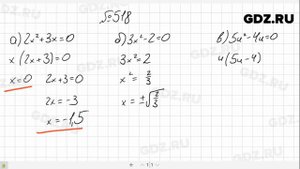 GDZ.RU
№518
а) 2x²+3x=0
x(2x+3)=0
x=0 2x+3=0
2x=-3
x=-1,5
б) 3x²-2=0
3x²=2
x²=2/3
x=±√(2/3)
в) 5u²-4u=0
u(5u-4)